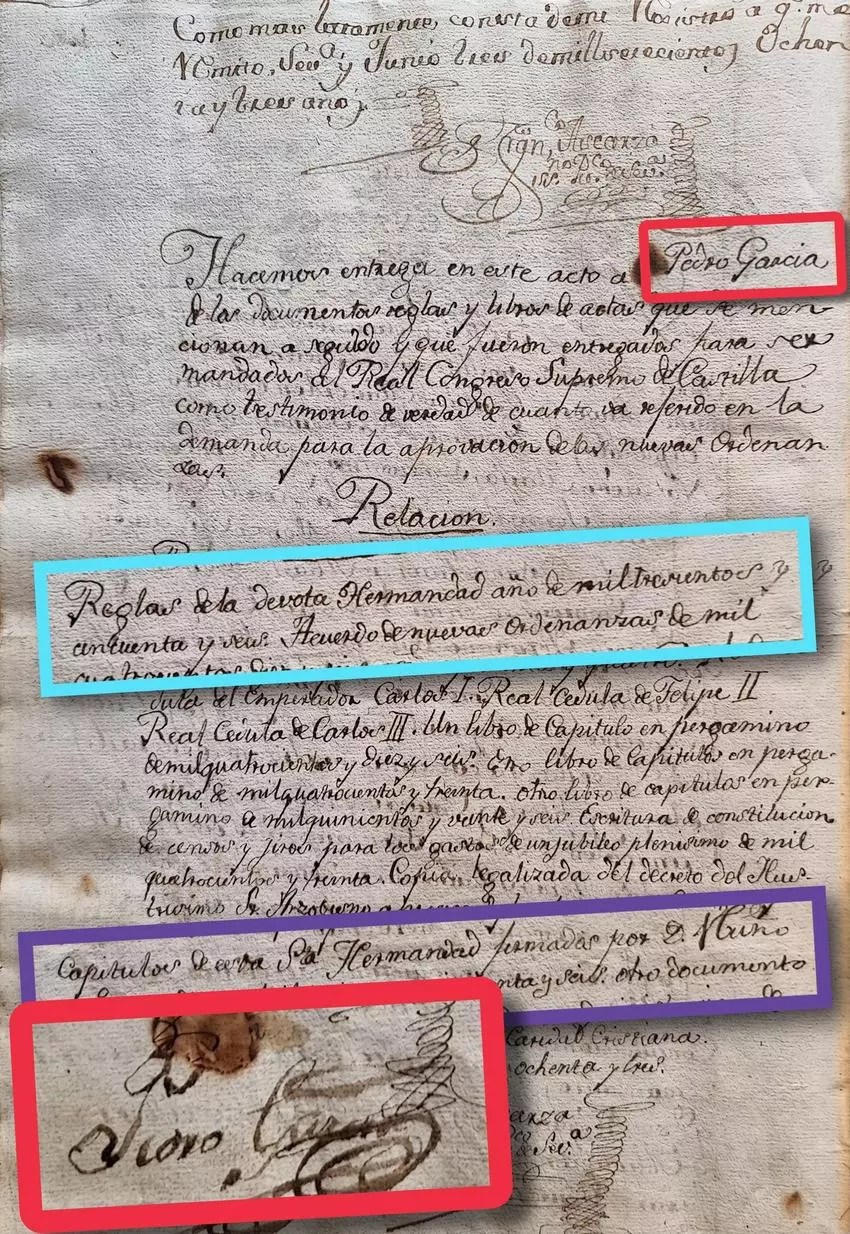 Como mas largamente, consta de mi Registro a q.e me
Remito, Sev.a y Junio tres de mill setecientos Ochen
ta y tres años
Hacemos entrega en este acto a Pedro Garcia
de los documentos reglas y libros de actas que se men-
cionan a seguido y que fueron entregados para ser
mandados al Real Congreso Supremo de Castilla
como testimonio de verdad de cuanto va referido en la
demanda para la aprovacion de las nuevas Ordenan
zas.
Relacion.
Reglas de la devota Hermandad año de mil trescientos y
cincuenta y seis. Acuerdo de nuevas Ordenanzas de mil
cuatrocientos diez
dula del Emperador Carlos I. Real Cedula de Felipe II
Real Cedula de Carlos III. Un libro de Capitulo en pergamino
de mil quatrocientos y diez y seis. Otro libro de Capitulos en perga-
mino de mil quatrocientos y treinta. otro libro de capitulos en per-
gamino de mil quinientos y vente y seis. Escritura de constitucion
de censos y juros para los gastos de un jubileo plenisimo de mil
quatrocientos y treinta. Copia legalizada del decreto del Ilus-
trisimo Sr. Arzobispo
Capitulos de esta Sta Hermandad firmadas por D. Nuño
enta y seis. otro documento
Caridad Cristiana.
ochenta y tres.
Pedro Garcia